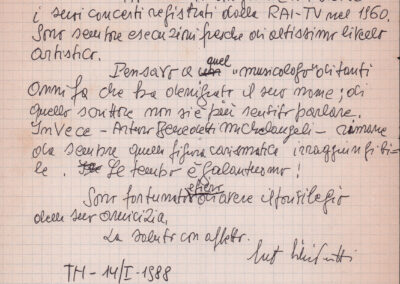 i suoi concerti registrati dalla RAI-TV nel 1960.
Sono sempre esecuzioni perche di altissimo livello
artistico.
Pensavo a quel "musicologo" di tanti
anni fa che ha denigrato il suo nome; di
quello scrittore non si è più sentito parlare.
Invece - Arturo Benedetti Michelangeli - rimane
da sempre quella figura carismatica irraggiungibi-
le. Il tempo è galantuomo!
Sono fortunato di avere il privilegio
della sua amicizia.
La saluto con affetto.
TH - 14/I-1988